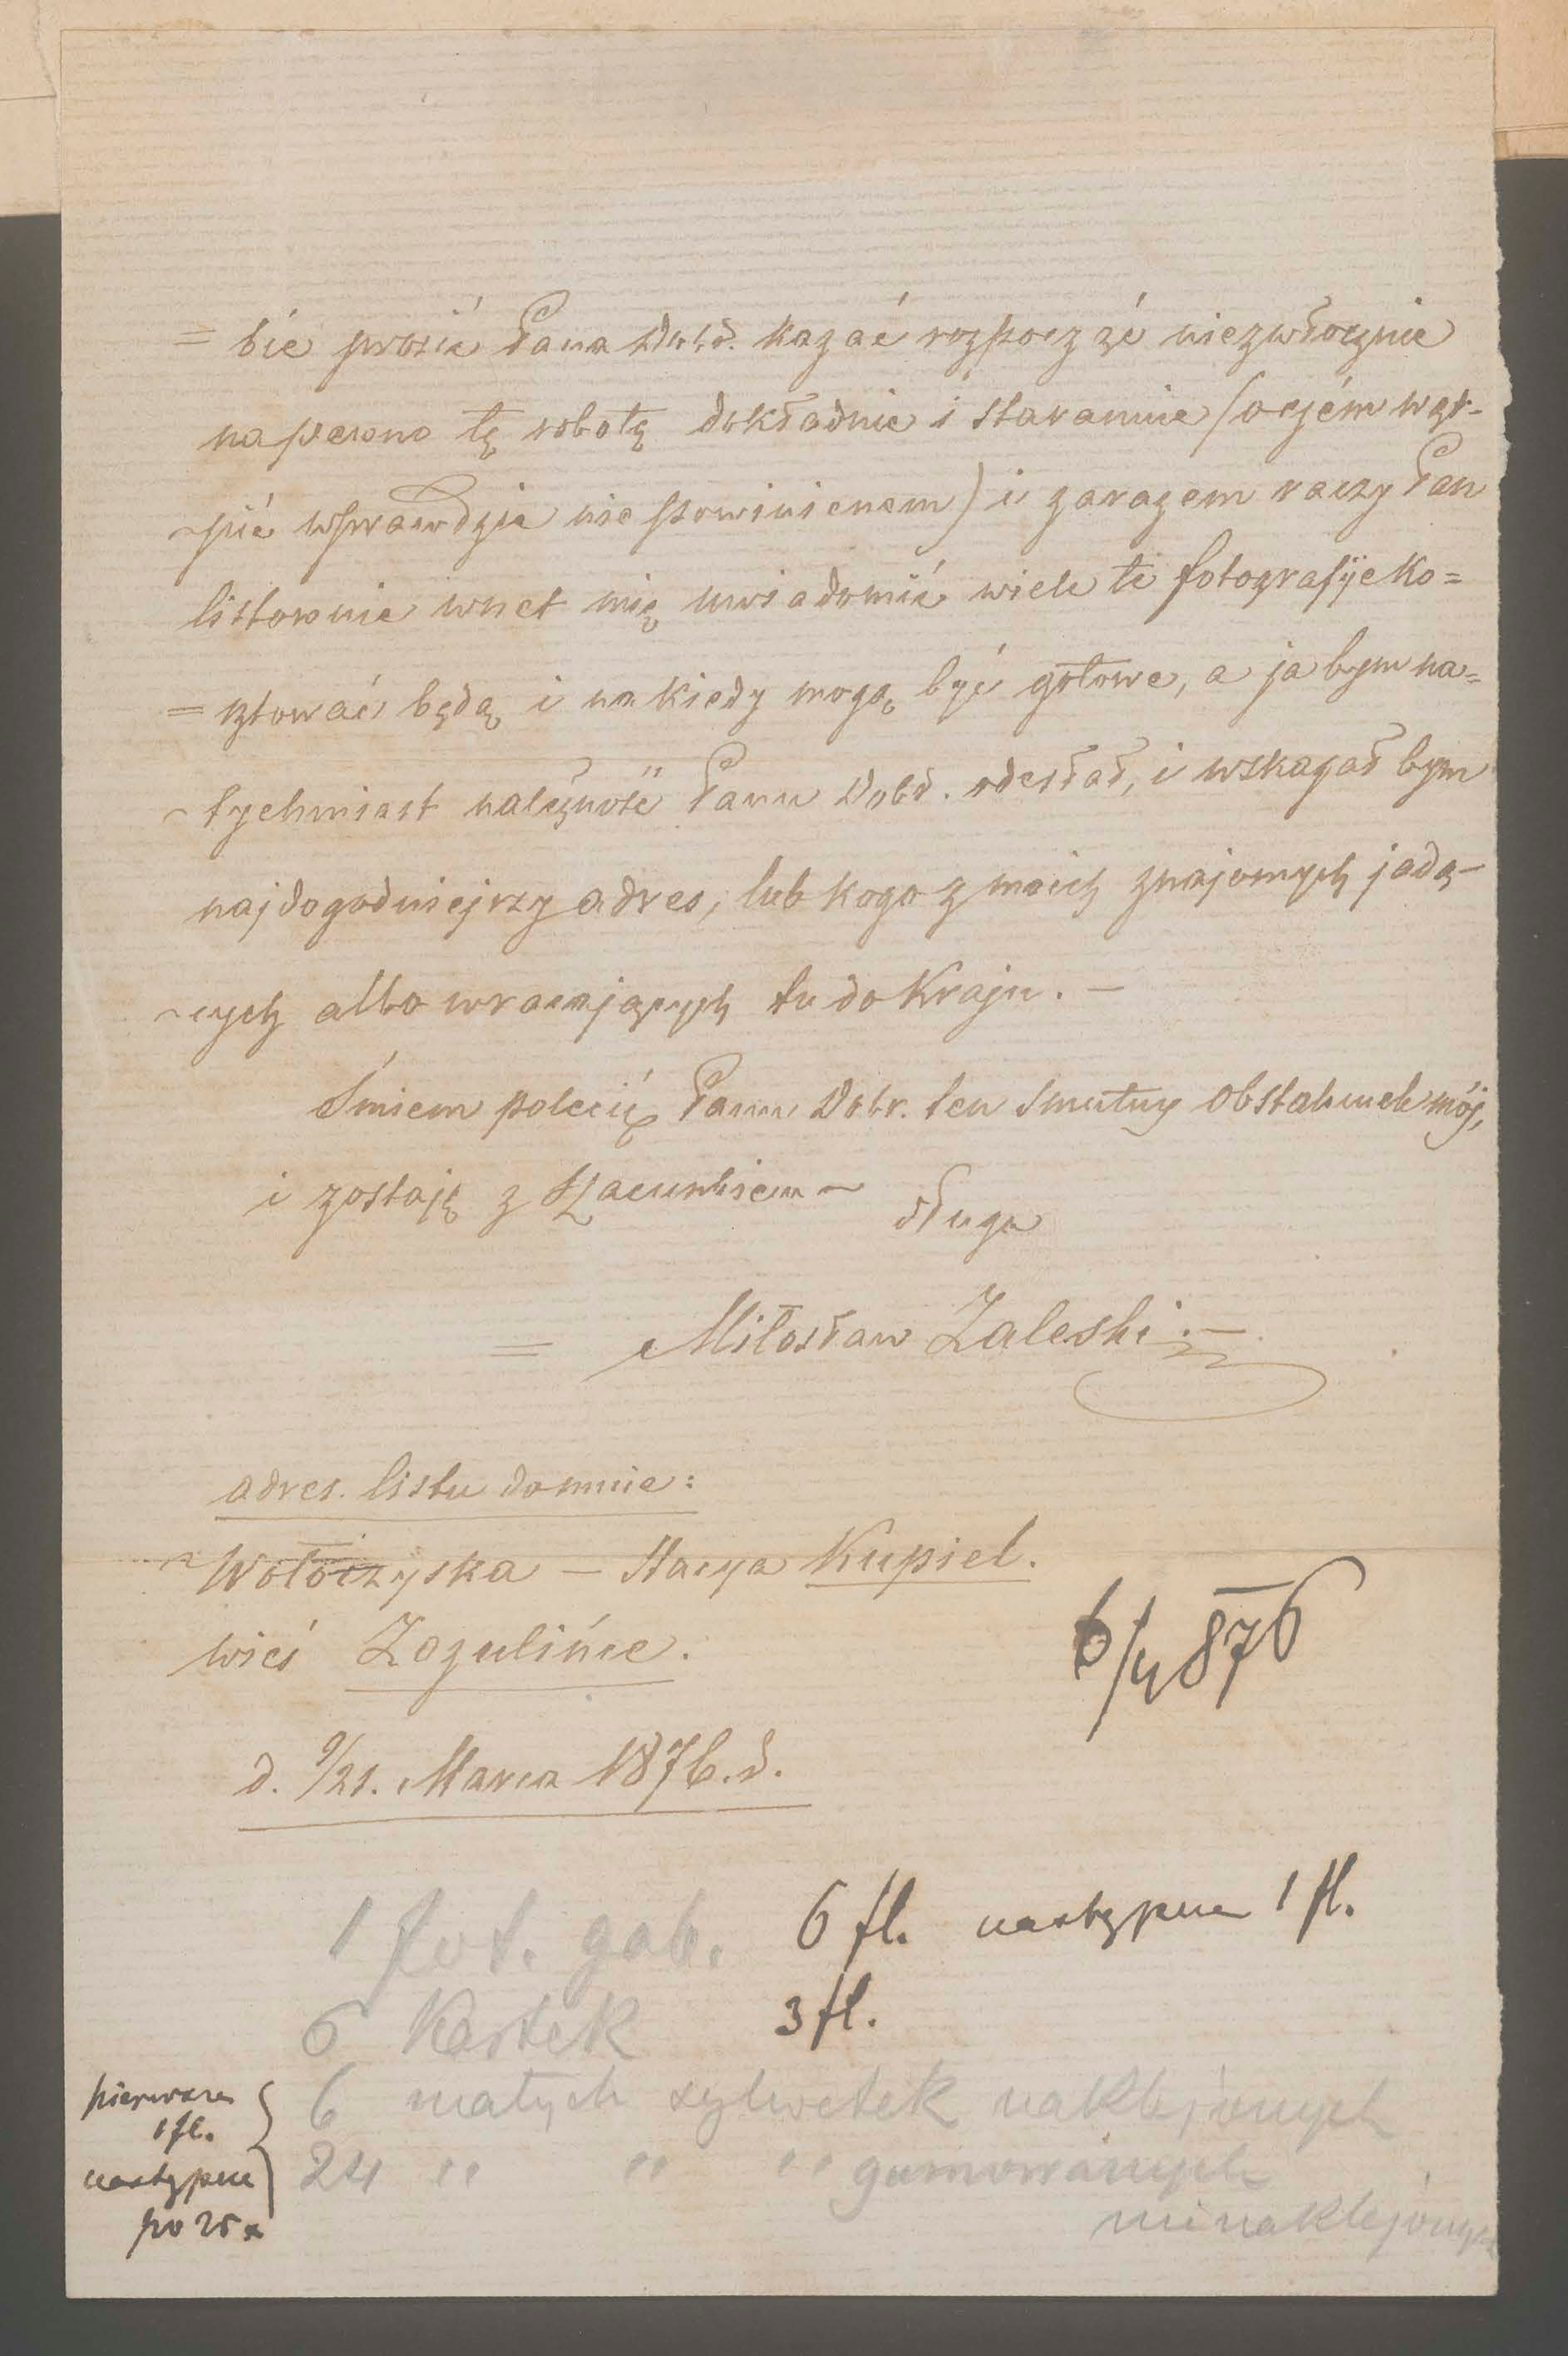 = bie prosić Pana Dobd. kazać rozpocząć niezwłocznie
na pewno tę robotę dokładnie i starannie (o czém wąt-
~pić wprawdzie nie powinienem) i zarazem raczy Pan
listownie wnet mię uwiadomić wiele te fotografije ko=
= sztować będą i na kiedy mogą być gotowe, a ja bym na=
~ tychmiast należność Panu Dobd. odesłał, i wskazał bym
najdogodniejszy adres, lub kogo z moich znajomych jadą-
~cych albo wracających tu do Kraju. —
Śmiem polecić Panu Dobr. ten smutny obstalunek mój,
i zostaję z szacunkiem ~ sługa
= Miłosław Zaleski . —
adres. listu do mnie:
~ Wołoczyska — Stacya Kupiel.
wieś Zozulińce.
6/4 876
d. 9/21. Marca 1876. d.
1 fot. gab. 6 fl. następna 1 fl.
6 Kartek 3 fl.
pierwsza 1 fl. } 6 małych sylwetek naklejonych
następne po 25 x } 24 " " " gumowanych
nienaklejonych